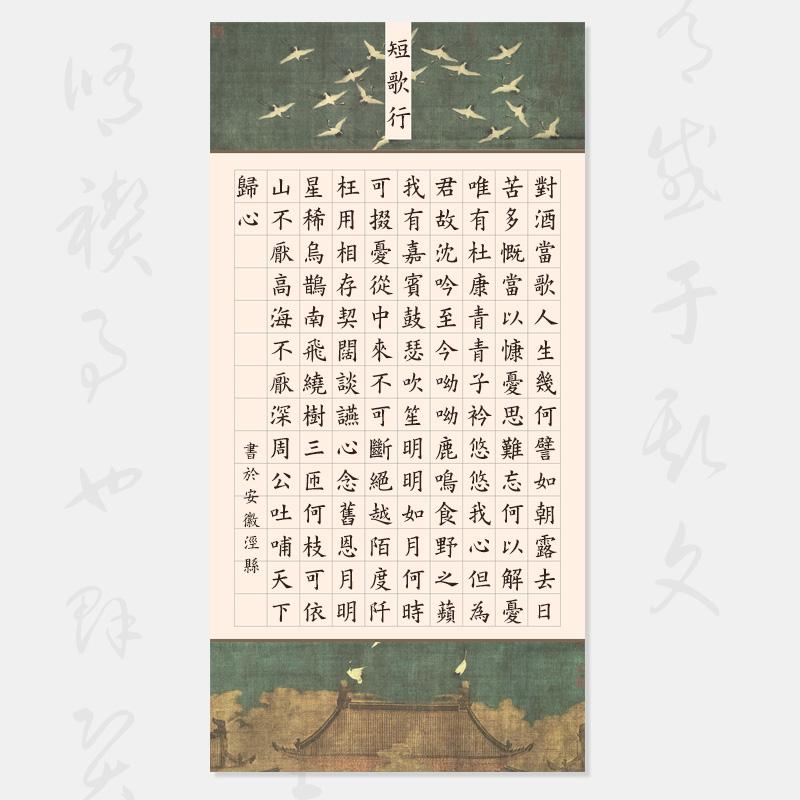 短歌行
對酒當歌人生幾何譬如朝露去日
苦多慨當以慷憂思難忘何以解憂
唯有杜康青青子衿悠悠我心但為
君故沈吟至今呦呦鹿鳴食野之蘋
我有嘉賓鼓瑟吹笙明明如月何時
可掇憂從中來不可斷絕越陌度阡
枉用相存契闊談讌心念舊恩月明
星稀烏鵲南飛繞樹三匝何枝可依
山不厭高海不厭深周公吐哺天下
歸心
書於安徽涇縣
有感于斯文
脩禊事也群賢